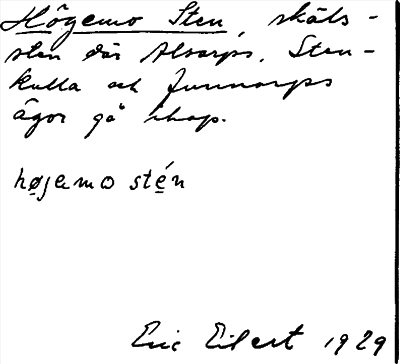 Högemo Sten, skäls-
sten där Alvarps, Sten-
kulla och Junnarps
ägor gå ihop.
højemo stén
Eric Eilert 1929